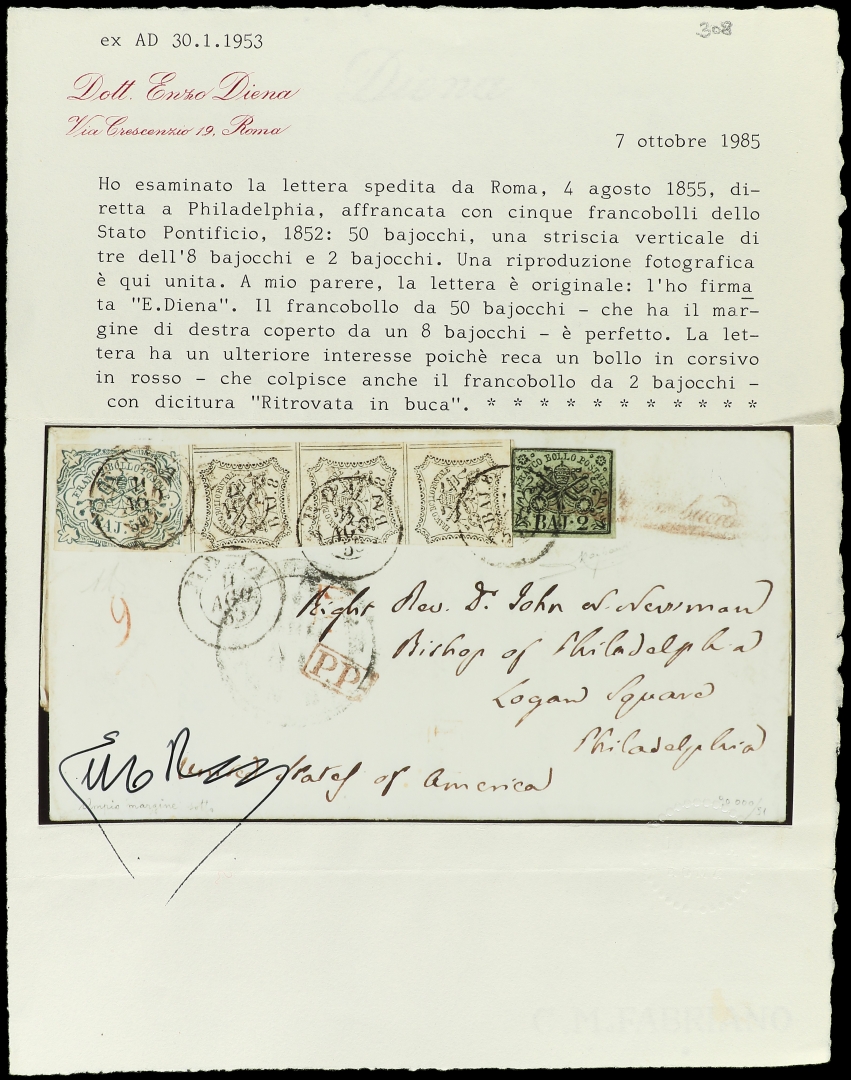 308
ex AD 30.1.1953
Dott. Enzo Diena
Via Crescenzio 19, Roma
7 ottobre 1985
Ho esaminato la lettera spedita da Roma, 4 agosto 1855, di-
retta a Philadelphia, affrancata con cinque francobolli dello
Stato Pontificio, 1852: 50 bajocchi, una striscia verticale di
tre dell'8 bajocchi e 2 bajocchi. Una riproduzione fotografica
è qui unita. A mio parere, la lettera è originale: l'ho firma
ta "E.Diena". Il francobollo da 50 bajocchi - che ha il mar-
gine di destra coperto da un 8 bajocchi - è perfetto. La let-
tera ha un ulteriore interesse poichè reca un bollo in corsivo
in rosso - che colpisce anche il francobollo da 2 bajocchi -
con dicitura "Ritrovata in buca". * * * * * * * * * * *
BAJ 8 BAJ 8 BAJ 8 BAJ 2
9
Right Rev. Dr. John N. Newman
Bishop of Philadelphia
P.P.
Logan Square
Philadelphia
United States of America
C.M.FABRIANO